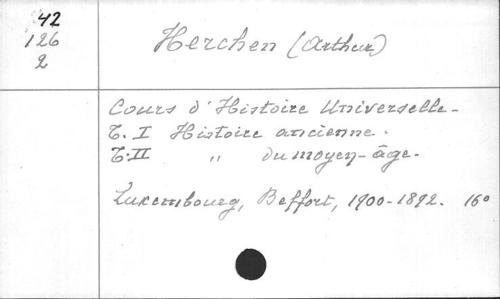 42
126
2
Herchen (Arthur)
Cours d'Histoire Universelle-
T. I Histoire ancienne.
T. II " du moyen-âge.
Luxembourg, Beffort, 1900-1892. 16°